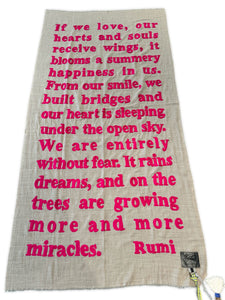 If we love, our
hearts and souls
receive wings, it
blooms a summery
happiness in us.
From our smile, we
built bridges and
our heart is sleeping
under the open sky.
We are entirely
without fear. It rains
dreams, and on the
trees are growing
more and more
miracles. Rumi